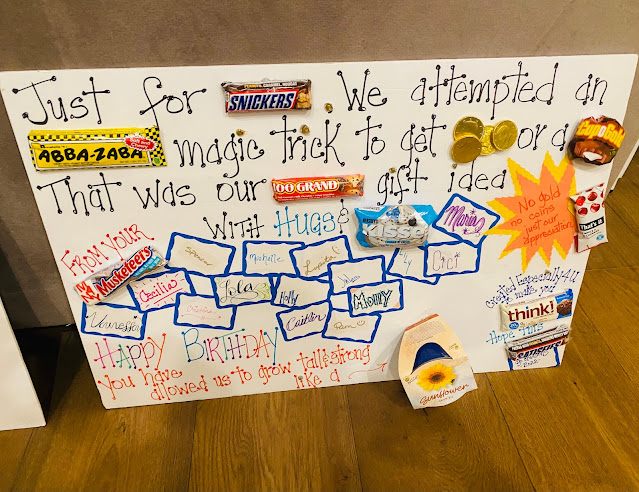 Just for SNICKERS We attempted an
ABBA-ZABA magic trick to get or a Cup o Gold
That was our 100 GRAND gift idea
No gold
no coins
just our
appreciation
That's it.
WITH HUGS & KISSES
Maria
FROM YOUR
3 Musketeers
Michelle
Cici
Cecilia
Lola
Holly
Molly
Vanessa
Caitlin
Pam
created Especially 4 U
think!
Hope this
HAPPY BIRTHDAY
You have
allowed us to grow tall & strong
like a
Sunflower